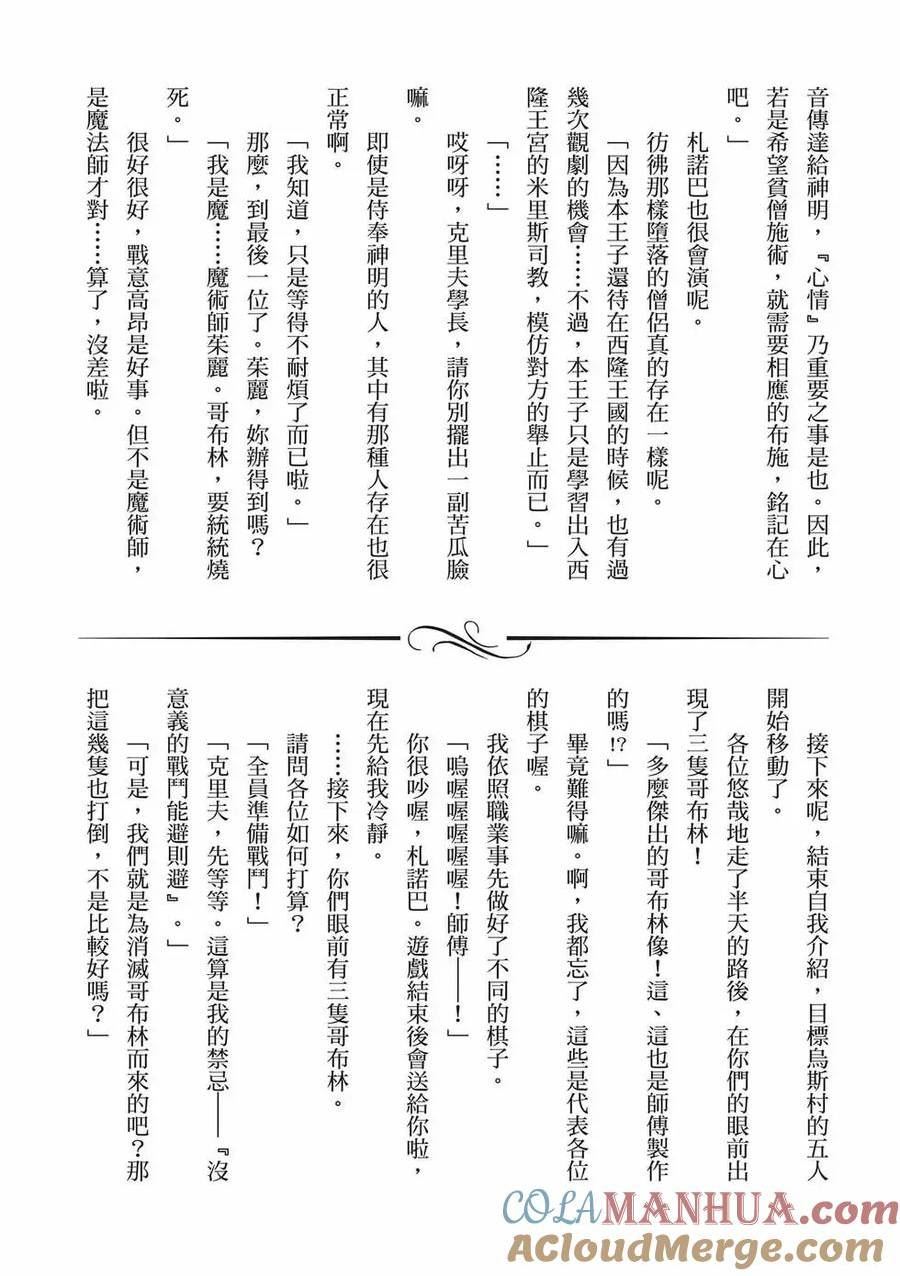 音傳達給神明，『心情』乃重要之事是也。因此，
若是希望貧僧施術，就需要相應的布施，銘記在心
吧。」
札諾巴也很會演呢。
彷彿那樣墮落的僧侶真的存在一樣呢。
「因為本王子還待在西隆王國的時候，也有過
幾次觀劇的機會……不過，本王子只是學習出入西
隆王宮的米里斯司教，模仿對方的舉止而已。」
「……」
哎呀呀，克里夫學長，請你別擺出一副苦瓜臉
嘛。
即使是侍奉神明的人，其中有那種人存在也很
正常啊。
「我知道，只是等得不耐煩了而已啦。」
那麼，到最後一位了。茱麗，妳辦得到嗎？
「我是魔……魔術師茱麗。哥布林，要統統燒
死。」
很好很好，戰意高昂是好事。但不是魔術師，
是魔法師才對……算了，沒差啦。
接下來呢，結束自我介紹，目標烏斯村的五人
開始移動了。
各位悠哉地走了半天的路後，在你們的眼前出
現了三隻哥布林！
「多麼傑出的哥布林像！這、這也是師傅製作
的嗎!?」
畢竟難得嘛。啊，我都忘了，這些是代表各位
的棋子喔。
我依照職業事先做好了不同的棋子。
「嗚喔喔喔喔喔！師傅——！」
你很吵喔，札諾巴。遊戲結束後會送給你啦，
現在先給我冷靜。
……接下來，你們眼前有三隻哥布林。
請問各位如何打算？
「全員準備戰鬥！」
「克里夫，先等等。這算是我的禁忌——『沒
意義的戰鬥能避則避』。」
「可是，我們就是為消滅哥布林而來的吧？那
把這幾隻也打倒，不是比較好嗎？」
COLAMANHUA.com
ACloudMerge.com